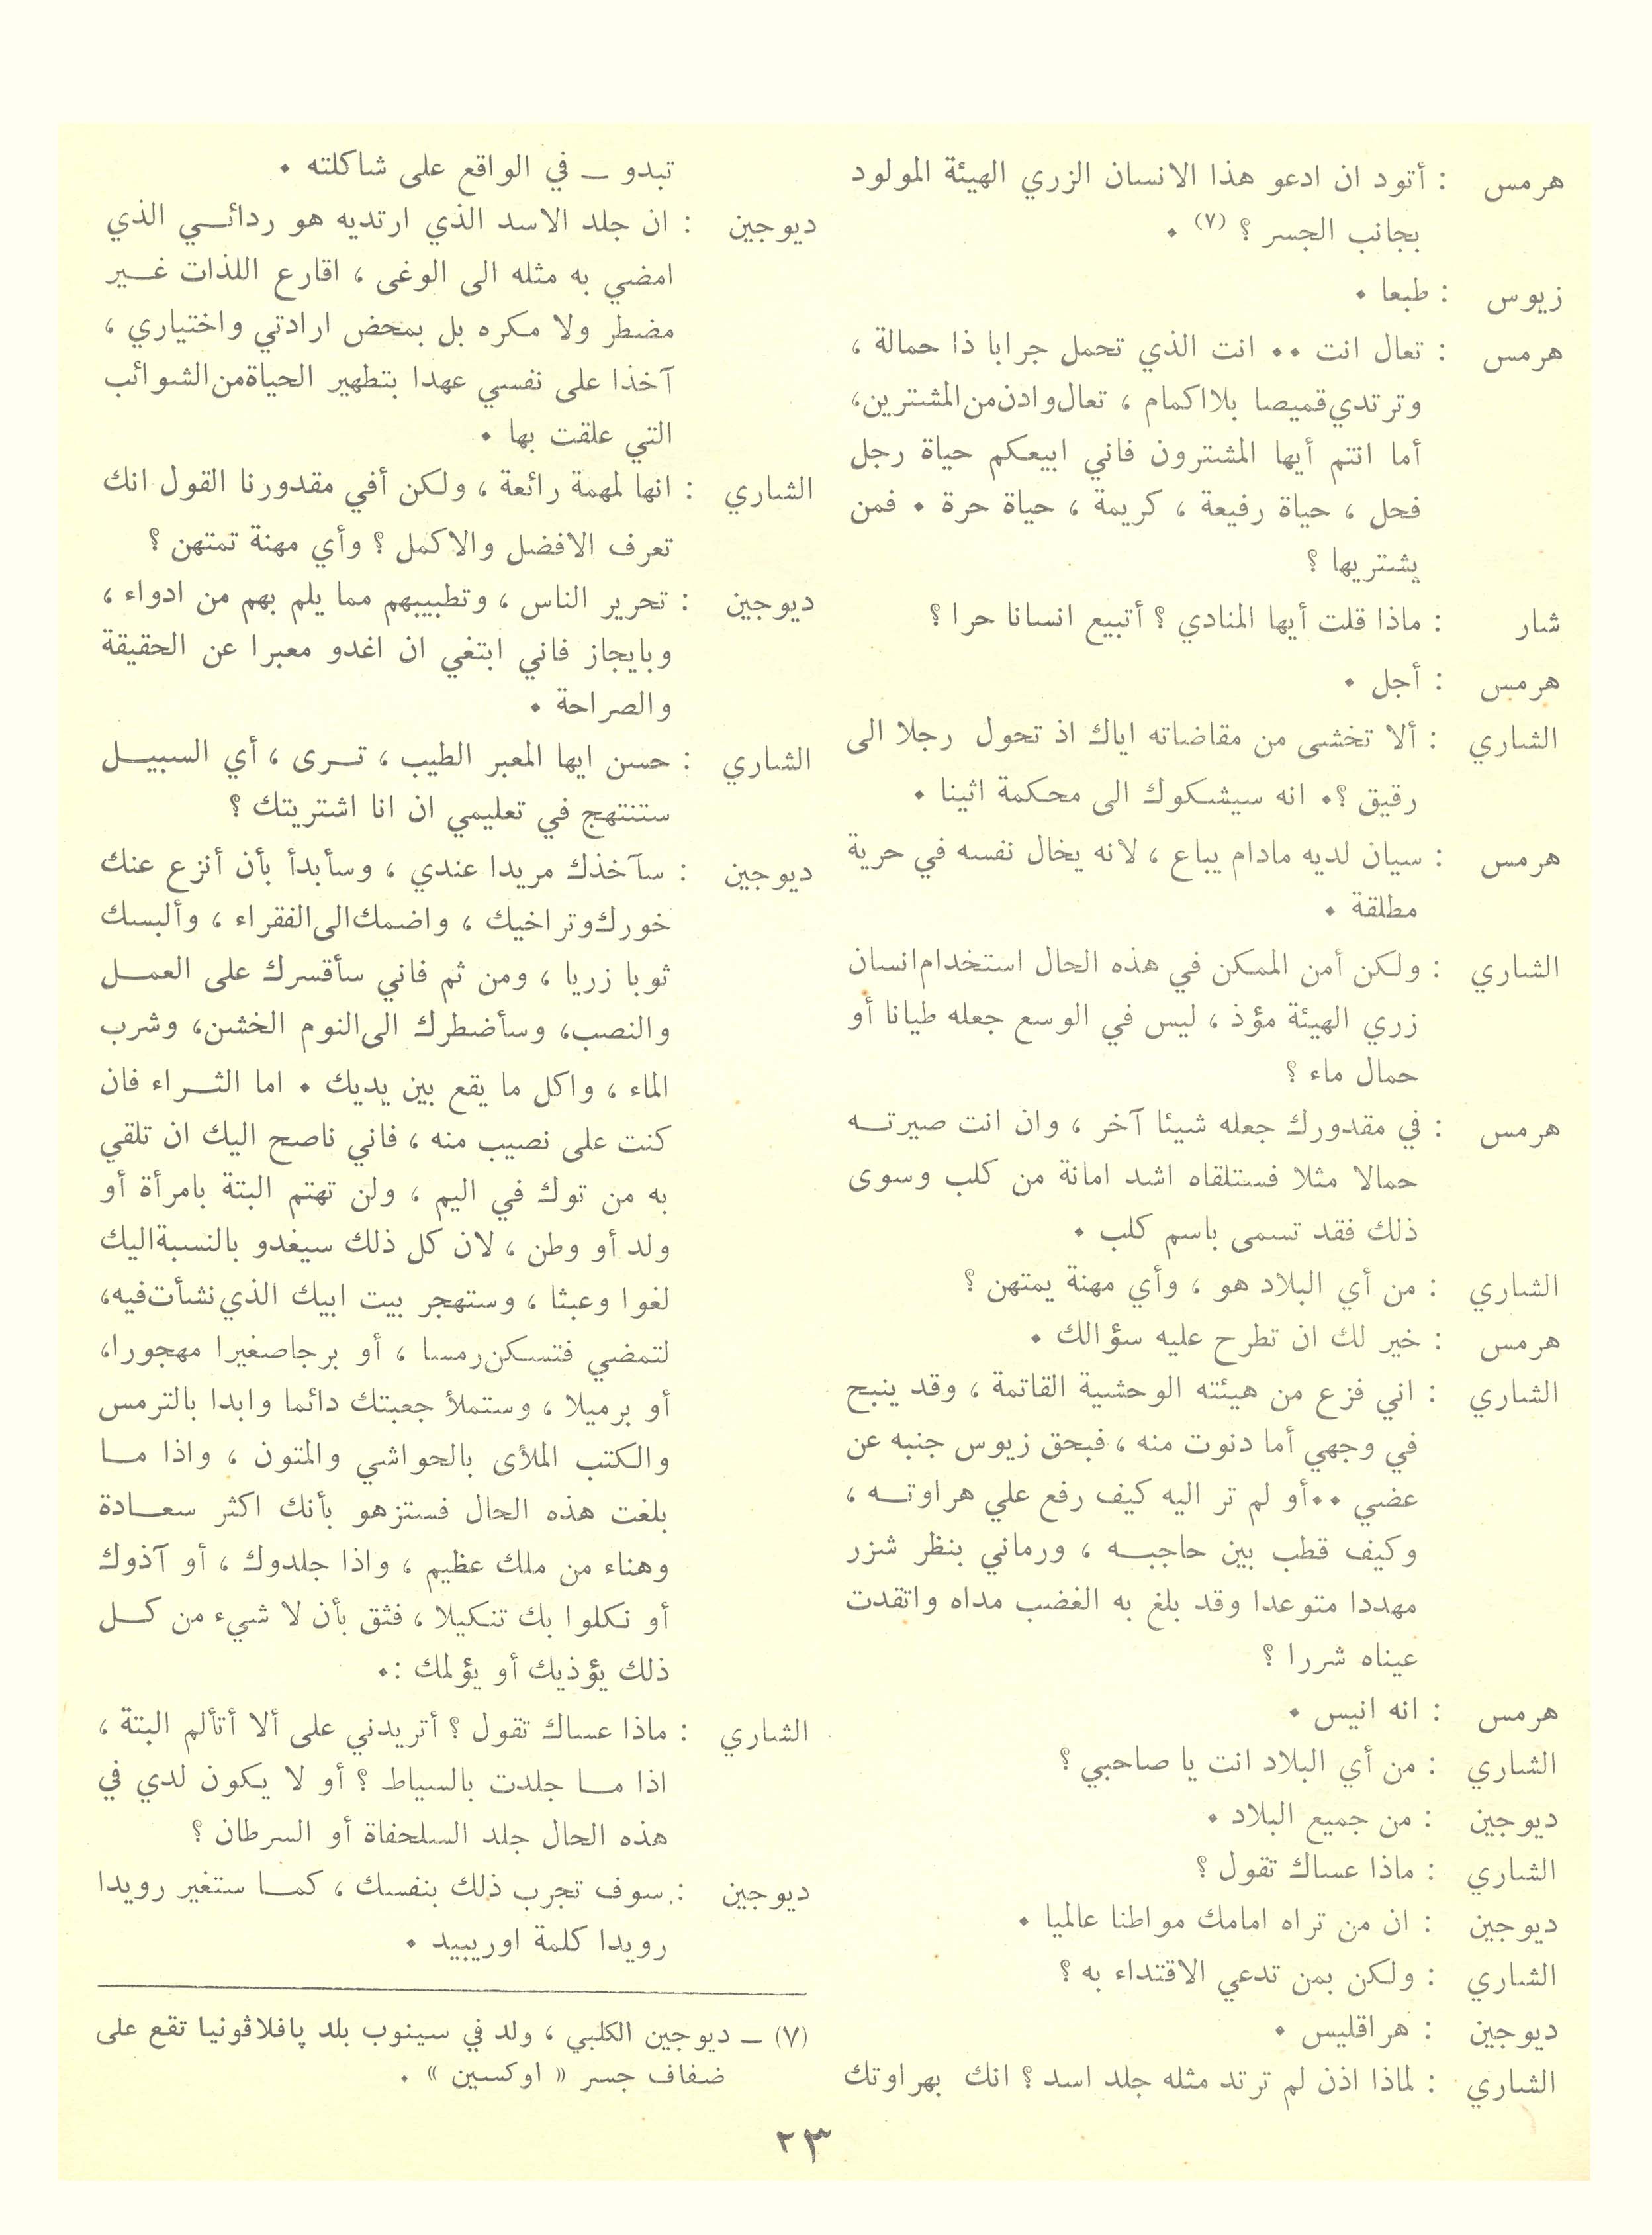 هرمس : أتود ان ادعو هذا الانسان الزري الهيئة المولود
بجانب الجسر ؟ (٧) .
زيوس : طبعا .
هرمس : تعال انت .. انت الذي تحمل جرابا ذا حمالة ،
وترتدي قميصا بلا اكمام ، تعال وادن من المشترين ،
أما انتم أيها المشترون فاني ابيعكم حياة رجل
فحل ، حياة رفيعة ، كريمة ، حياة حرة . فمن
يشتريها ؟
شار : ماذا قلت أيها المنادي ؟ أتبيع انسانا حرا ؟
هرمس : أجل .
الشاري : ألا تخشى من مقاضاته اياك اذ تحول رجلا الى
رقيق ؟. انه سيشكوك الى محكمة اثينا .
هرمس : سيان لديه مادام يباع ، لانه يخال نفسه في حرية
مطلقة .
الشاري : ولكن أمن الممكن في هذه الحال استخدام انسان
زري الهيئة مؤذ ، ليس في الوسع جعله طيانا أو
حمال ماء ؟
هرمس : في مقدورك جعله شيئا آخر ، وان انت صيرتـه
حمالا مثلا فستلقاه اشد امانة من كلب وسوى
ذلك فقد تسمى باسم كلب .
الشاري : من أي البلاد هو ، وأي مهنة يمتهن ؟
هرمس : خير لك ان تطرح عليه سؤالك .
الشاري : اني فزع من هيئته الوحشية القاتمة ، وقد ينبح
في وجهي أما دنوت منه ، فبحق زيوس جنبه عن
عضي ..أو لم تر اليه كيف رفع علي هراوتـه ،
وكيف قطب بين حاجبـه ، ورماني بنظر شزر
مهددا متوعدا وقد بلغ به الغضب مداه واتقدت
عيناه شررا ؟
هرمس : انه انيس .
الشاري : من أي البلاد انت يا صاحبي ؟
ديوجين : من جميع البلاد .
الشاري : ماذا عساك تقول ؟
ديوجين : ان من تراه امامك مواطنا عالميا .
الشاري : ولكن بمن تدعي الاقتداء به ؟
ديوجين : هراقليس .
الشاري : لماذا اذن لم ترتد مثله جلد اسد ؟ انك بهراوتك
تبدو ـ في الواقع على شاكلته .
ديوجين : ان جلد الاسد الذي ارتديه هو ردائـي الذي
امضي به مثله الى الوغى ، اقارع اللذات غـير
مضطر ولا مكره بل بمحض ارادتي واختياري ،
آخذا على نفسي عهدا بتطهير الحياة من الشوائب
التي علقت بها .
الشاري : انها لمهمة رائعة ، ولكن أفي مقدورنا القول انك
تعرف الافضل والاكمل ؟ وأي مهنة تمتهن ؟
ديوجين : تحرير الناس ، وتطبيبهم مما يلم بهم من ادواء ،
وبايجاز فاني ابتغي ان اغدو معبرا عن الحقيقة
والصراحة .
الشاري : حسن ايها المعبر الطيب ، تـرى ، أي السبيـل
ستنتهج في تعليمي ان انا اشتريتك ؟
ديوجين : سآخذك مريدا عندي ، وسأبدأ بأن أنزع عنك
خورك وتراخيك ، واضمك الى الفقراء ، وألبسك
ثوبا زريا ، ومن ثم فاني سأقسرك على العمـل
والنصب، وسأضطرك الى النوم الخشن، وشرب
الماء ، واكل ما يقع بين يديك . اما الثـراء فان
كنت على نصيب منه ، فاني ناصح اليك ان تلقي
به من توك في اليم ، ولن تهتم البتة بامرأة أو
ولد أو وطن ، لان كل ذلك سيغدو بالنسبة اليك
لغوا وعبثا ، وستهجر بيت ابيك الذي نشأت فيه،
لتمضي فتسكن رمسا ، أو برجا صغيرا مهجورا،
أو برميلا ، وستملأ جعبتك دائما وابدا بالترمس
والكتب الملأى بالحواشي والمتون ، واذا مـا
بلغت هذه الحال فستزهو بأنك اكثر سعـادة
وهناء من ملك عظيم ، واذا جلدوك ، أو آذوك
أو نكلوا بك تنكيلا ، فثق بأن لا شيء من كـل
ذلك يؤذيك أو يؤلمك :.
الشاري : ماذا عساك تقول ؟ أتريدني على ألا أتألم البتة ،
اذا مـا جلدت بالسياط ؟ أو لا يكون لدي في
هذه الحال جلد السلحفاة أو السرطان ؟
ديوجين : سوف تجرب ذلك بنفسك ، كمـا ستغير رويدا
رويدا كلمة اوريبيد .
(٧) ـ ديوجين الكلبي ، ولد في سينوب بلد پافلاڤونيا تقع على
ضفاف جسر « اوكسين » .
٢٣